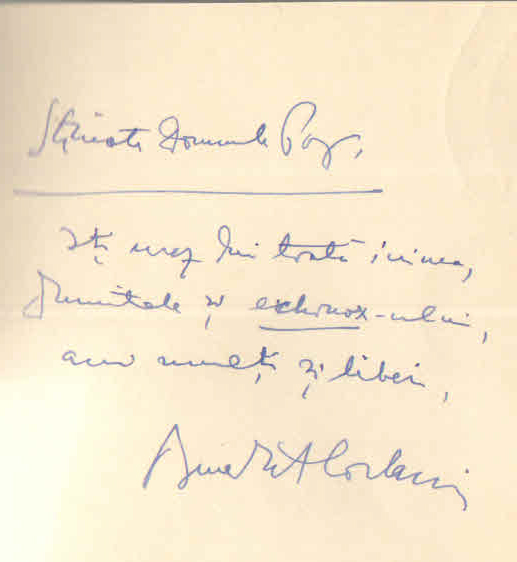 Stimate Domnule Pop,
Îți urez din toată inima,
Dumitale și echinox-ului,
ani mulți și liberi,